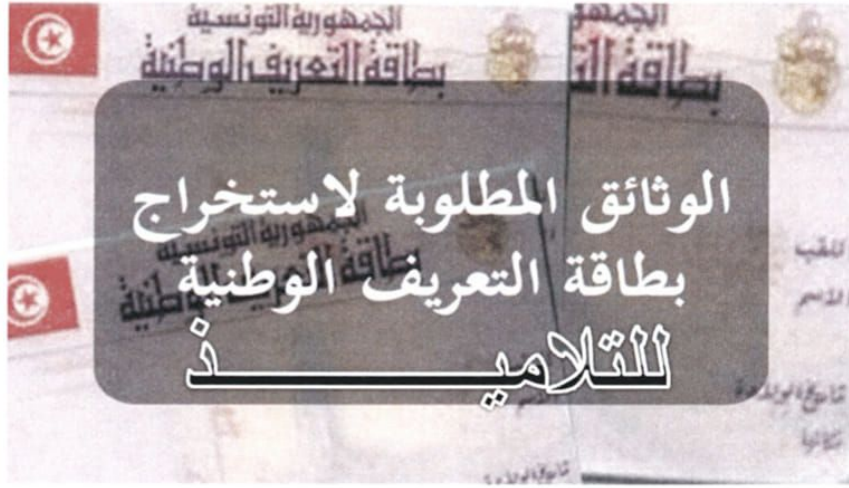 الجمهورية التونسية
بطاقة التعريف الوطنية
الجمهو
بطاقة الت
الوثائق المطلوبة لاستخراج
بطاقة التعريف الوطنية
للتلاميــــــــــــذ
الجمهورية التونسية
بطاقة التعريف الوطنية
اللقب
الاسم
تاريخ الولادة
مكانها
تاريخ الولادة